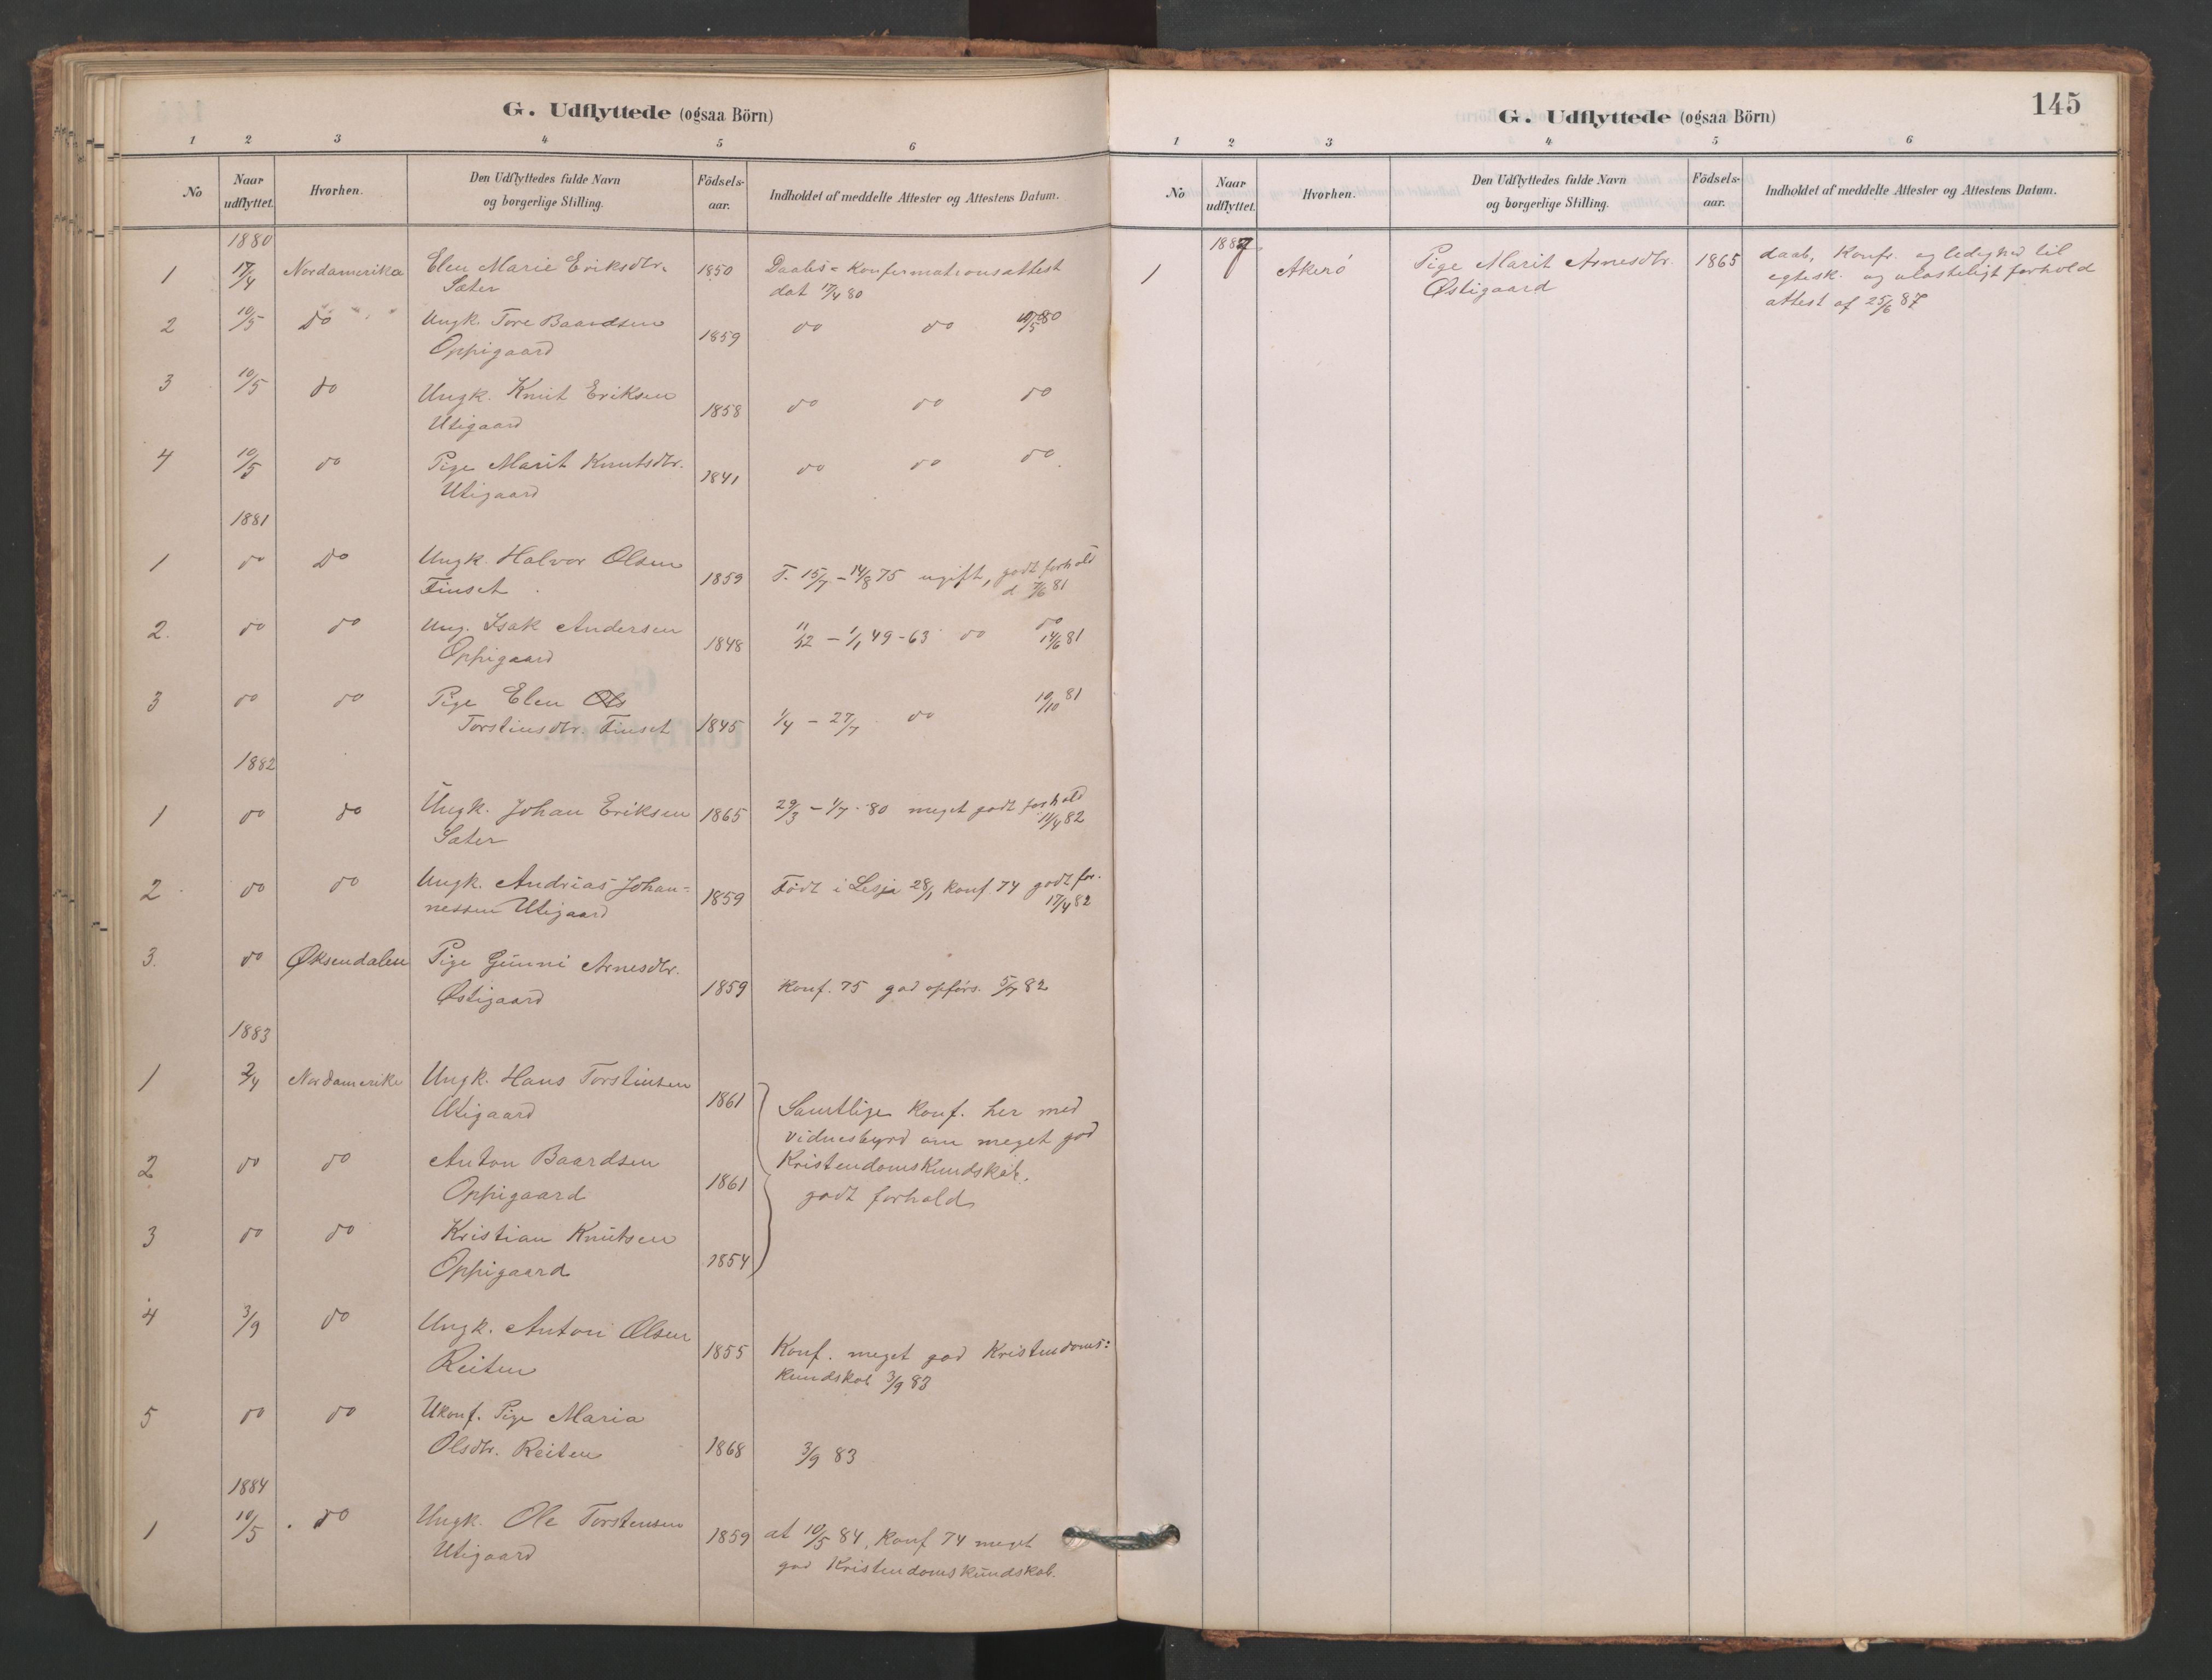 G. Udflyttede (ogsaa Börn)
1 2 3 4 5 6
No Naar udflyttet. Hvorhen. Den Udflyttedes fulde Navn og borgerlige Stilling. Födsels-aar. Indholdet af meddelte Attester og Attestens Datum.
1880
1 17/4 Nordamerika Elen Marie Eriksdtr. 1850 Daabs- Konfirmationsattest
Sæter dat 17/4 80
2 10/5 do Ungk. Tore Baardsen 1859 do do 10/5 80
Oppigaard
3 10/5 do Ungk. Knut Eriksen 1858 do do do
Utigaard
4 10/5 do Pige Marit Knutsdtr. 1841 do do do
Utigaard
1881
1 do do Ungk. Halvor Olsen 1859 T. 15/7 - 14/8 75 ugift, godt forhold
Finset d 7/6 81
2. do do Ung. Isak Andersen 1848 11/12 - 1/1 49-63 do do
Oppigaard 14/6 81
3 do do Pige Elen Ols 1845 1/4 - 27/7 do 19/10 81
Torstinsdtr. Finset
1882
1 do do Ungk. Johan Eriksen 1865 29/3 - 1/7 - 80 meget godt forhold
Sæter 11/4 82
2 do do Ungk. Andrias Johan= 1859 Født i Lesja 28/1 konf. 74 godt for.
nessen Utigaard 17/4 82
3. do Øksendalen Pige Gunni Arnesdtr. 1859 konf. 75 god opførs. 5/7 82
Østigaard
1883
1 2/4 Nordamerika Ungk. Hans Torstinsen 1861
Utigaard
2 do do Anton Baardsen 1861
Oppigaard
3 do do Kristian Knutsen 1854
Oppigaard
Samtlige konf. her med
vidnesbyrd om meget god
Kristendomskundskab.
godt forhold
4 3/9 do Ungk. Anton Olsen 1855 Konf. meget god Kristendoms=
Reiten kundskab 3/9 83
5 do do Ukonf. Pige Maria
Olsdtr. Reiten 1868 3/9 83
1884
1 10/5 do Ungk. Ole Torstensen 1859 at 10/5 84, Konf 74 meget
Utigaard god Kristendomskundskab.
G. Udflyttede (ogsaa Börn) 145
1 2 3 4 5 6
No Naar udflyttet. Hvorhen. Den Udflyttedes fulde Navn og borgerlige Stilling. Födsels-aar. Indholdet af meddelte Attester og Attestens Datum.
1887
1 Akerö Pige Marit Arnesdtr. 1865 daab, Konfr. og ledighed til
Østigaard egtesk. og ulasteligt forhold
attest af 25/6 87